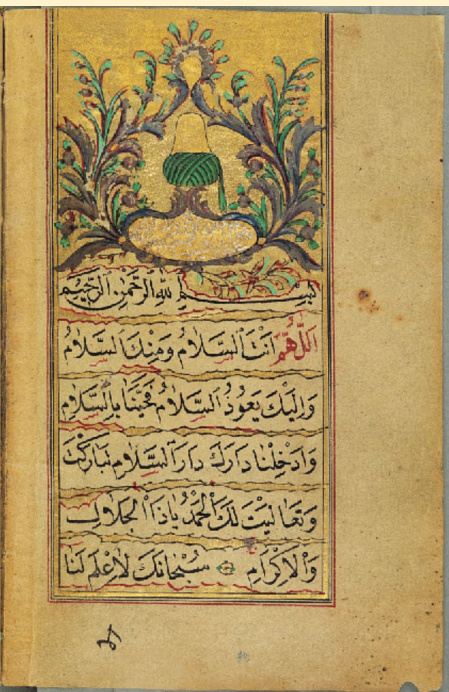 بِسْمِ اللهِ الرَّحْمٰنِ الرَّحِيمِ
اَللّٰهُمَّ اَنْتَ السَّلَامُ وَمِنْكَ السَّلَامُ
وَاِلَيْكَ يَعُودُ السَّلَامُ فَحَيِّنَا بِالسَّلَامِ
وَادْخِلْنَا دَارَكَ دَارَ السَّلَامِ تَبَارَكْتَ
وَتَعَالَيْتَ لَكَ الْحَمْدُ يَاذَا الْجَلَالِ
وَالْاِكْرَامِ سُبْحَانَكَ لَا عِلْمَ لَنَا